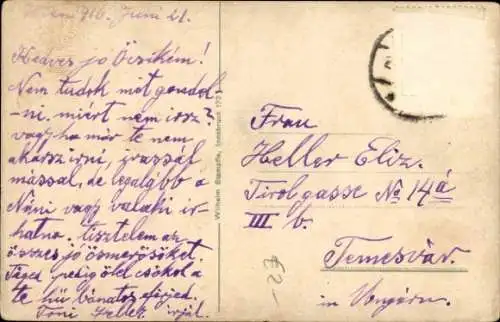 916. Juni 21.
Kedves jó Öcsikém!
Nem tudok mit gondol
-ni. miért nem irsz?
vagy ha már te nem
akarsz irni, irassál
mással, de legalább a
Náni vagy valaki ir-
hatna. tisztelem az
összes jó ismerősöket.
Téged pedig ölel csókol a
te hű bánatos férjed.
Toni irjál.
Wilhelm Stempfle, Innsbruck
Frau
Heller Eliz.
Tirolgasse No 14a
III b.
Temesvár.
in Ungarn.
£2-